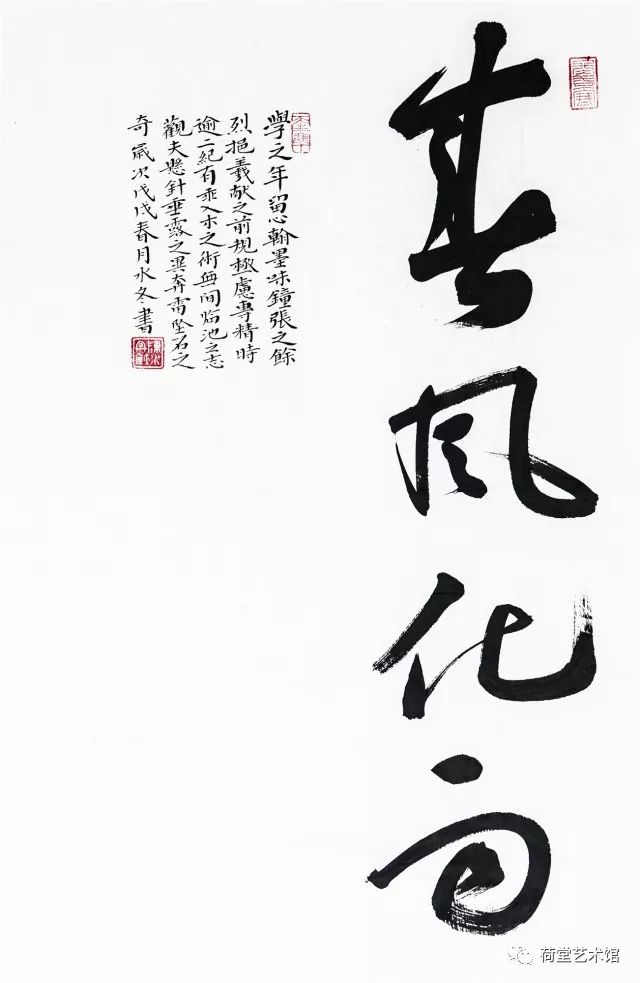 春風化雨
學之年留心翰墨味鐘張之餘
烈挹羲献之前規極慮專精時
逾二紀有乖入木之術無间临池之志
觀夫懸針垂露之異奔雷坠石之
奇歲次戊戌春月水冬書
荷堂艺术馆